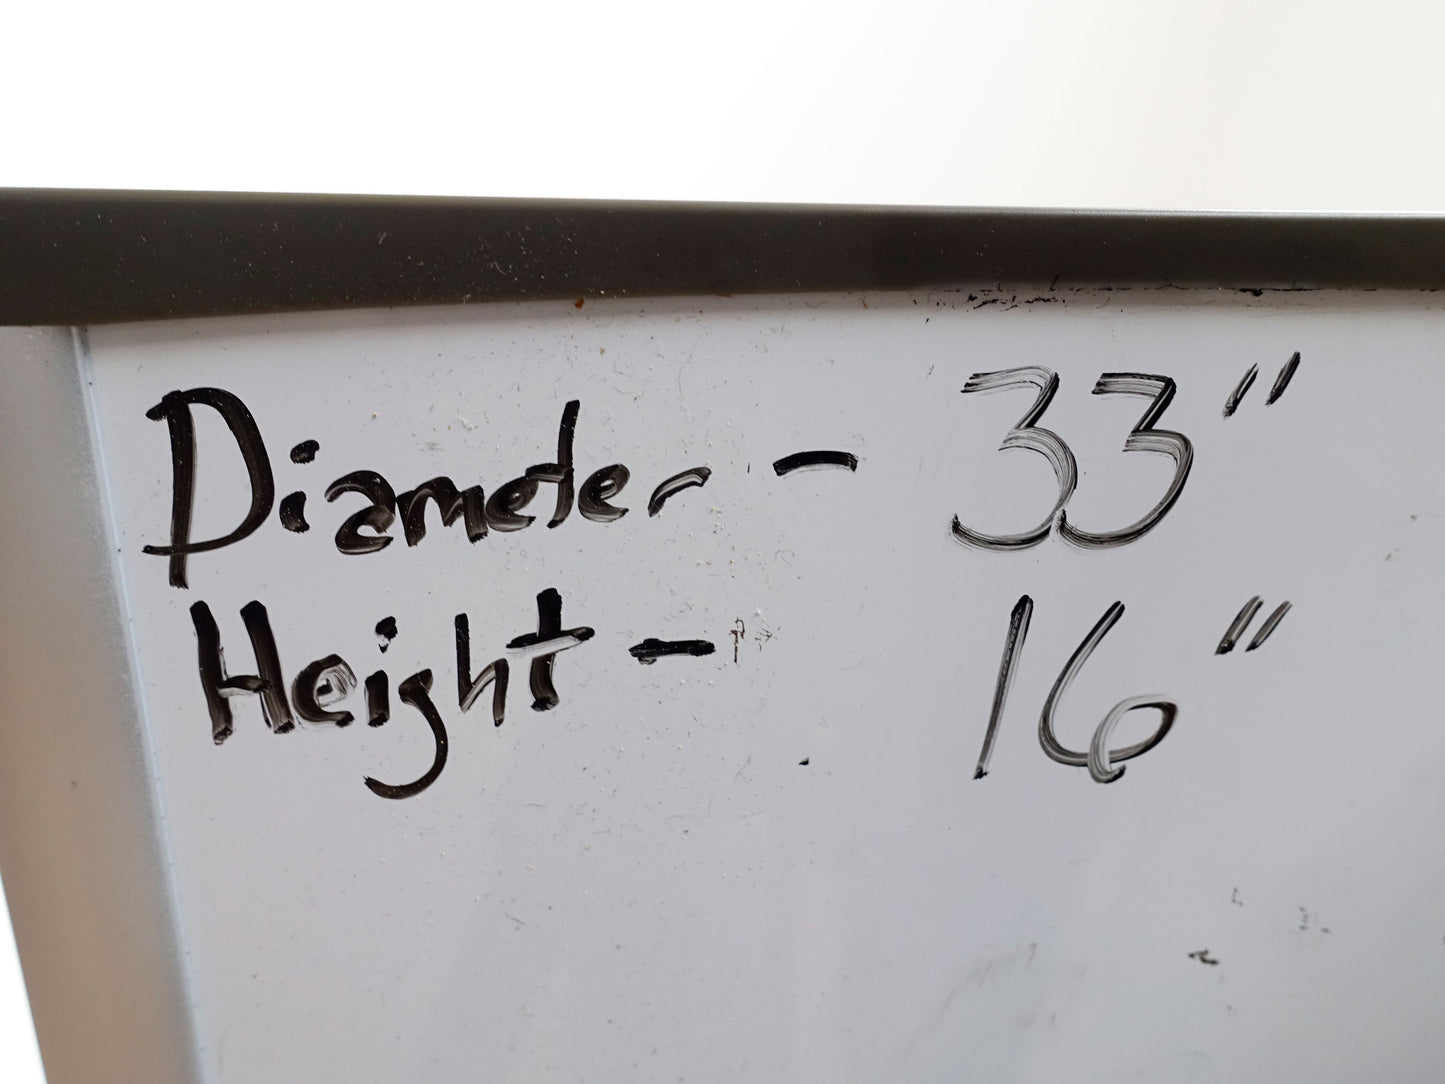 Diameter - 33"
Height - 16"